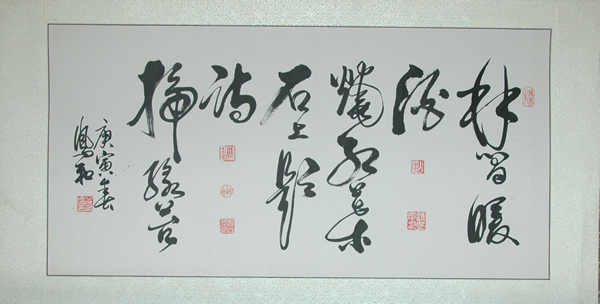 林間暖
酒
燒紅葉
石上題
詩
掃綠苔
庚寅春